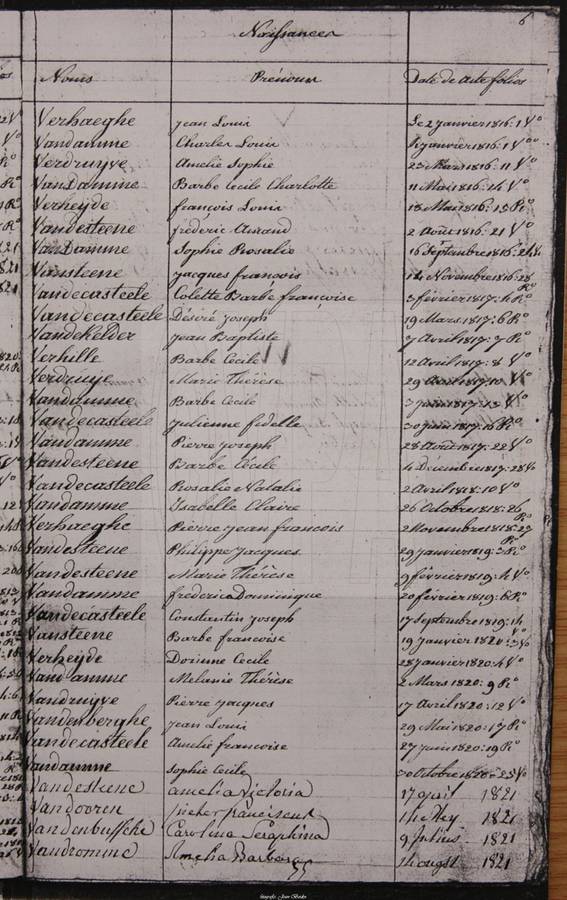 6
Naissances
Noms Prénoms Date de acte folios
Verhaeghe jean Louis Le 2 janvier 1816: 1 Vº
Vandamme Charles Louis janvier 1816: 1 Vº
Verdruÿve Amelie Sophie 23 Mars 1816: 11 Vº
VanDamme Barbe Cecile Charlotte 11 Mai 1816: 14 Vº
Verheÿde francois Louis 18 Mai 1816: 15 Rº
Vandesteene fréderic Amand 2 Août 1816: 21 Vº
VanDamme Sophie Rosalie 16 Septembre 1816:
Vansteene jacques francois Novembre 1816: 28 Rº
Vandecasteele Colette Barbe françoise 3 février 1817: 6 Rº
Vandecasteele Désiré joseph 19 Mars 1817: 6 Rº
Vandekelder jean Baptiste 7 Avril 1817: 7 Rº
Verhille Barbe Cecile 12 Avril 1817: 8 Vº
Verdruije Marie Thérèse 29 Avril 1817: 10 Vº
Vandamme Barbe Cecile 3 juin 1817: Vº
Vandecasteele julienne fidelle 30 juin 1817: 16 Rº
Vandamme Pierre joseph 28 Août 1817: 22 Vº
Vandesteene Barbe Cécile 4 Decembre 1817: 28 Vº
Vandecasteele Rosalie Natalie 2 Avril 1818: 10 Vº
Vandamme Isabelle Claire 26 Octobre 1818: 26 Rº
Verhaeghe Pierre jean francois 2 Novembre 1818: 27 Rº
Vandesteene Philippe jacques 29 janvier 1819: 3 Rº
Vandesteene Marie Thérèse 9 février 1819: 4 Vº
Vandamme frederic Dominique 20 février 1819: 6 Rº
Vandecasteele Constantin joseph 17 Septembre 1819:
Vansteene Barbe francoise 19 janvier 1820: 3 Vº
Verheÿde Dorinne Cecile 28 janvier 1820: 4 Vº
Vandamme Melanie Thérèse 2 Mars 1820: 9 Rº
Vandruÿve Pierre jacques 17 Avril 1820: 12 Vº
Vandenberghe jean Louis 29 Mai 1820: 17 Rº
Vandecasteele Amelie francoise 27 juin 1820: 19 Rº
Vandamme Sophie Cecile 30 Octobre 1820: 25 Vº
Vandesteene amelia victoria 17 1821
Vandooren franciscus 1821
Vandenbussche Carolina Seraphina 9 julius 1821
Vandromme Amelia Barbara 1821